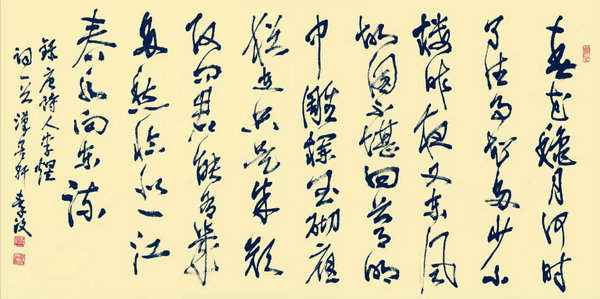 春花龝月何时
了往事知多少小
楼昨夜又东风
故国不堪回首月明
中雕栏玉砌应
犹在只是朱颜
改问君能有几
多愁恰似一江
春水向东流
录唐诗人李煜
词一首 汉墨轩 李